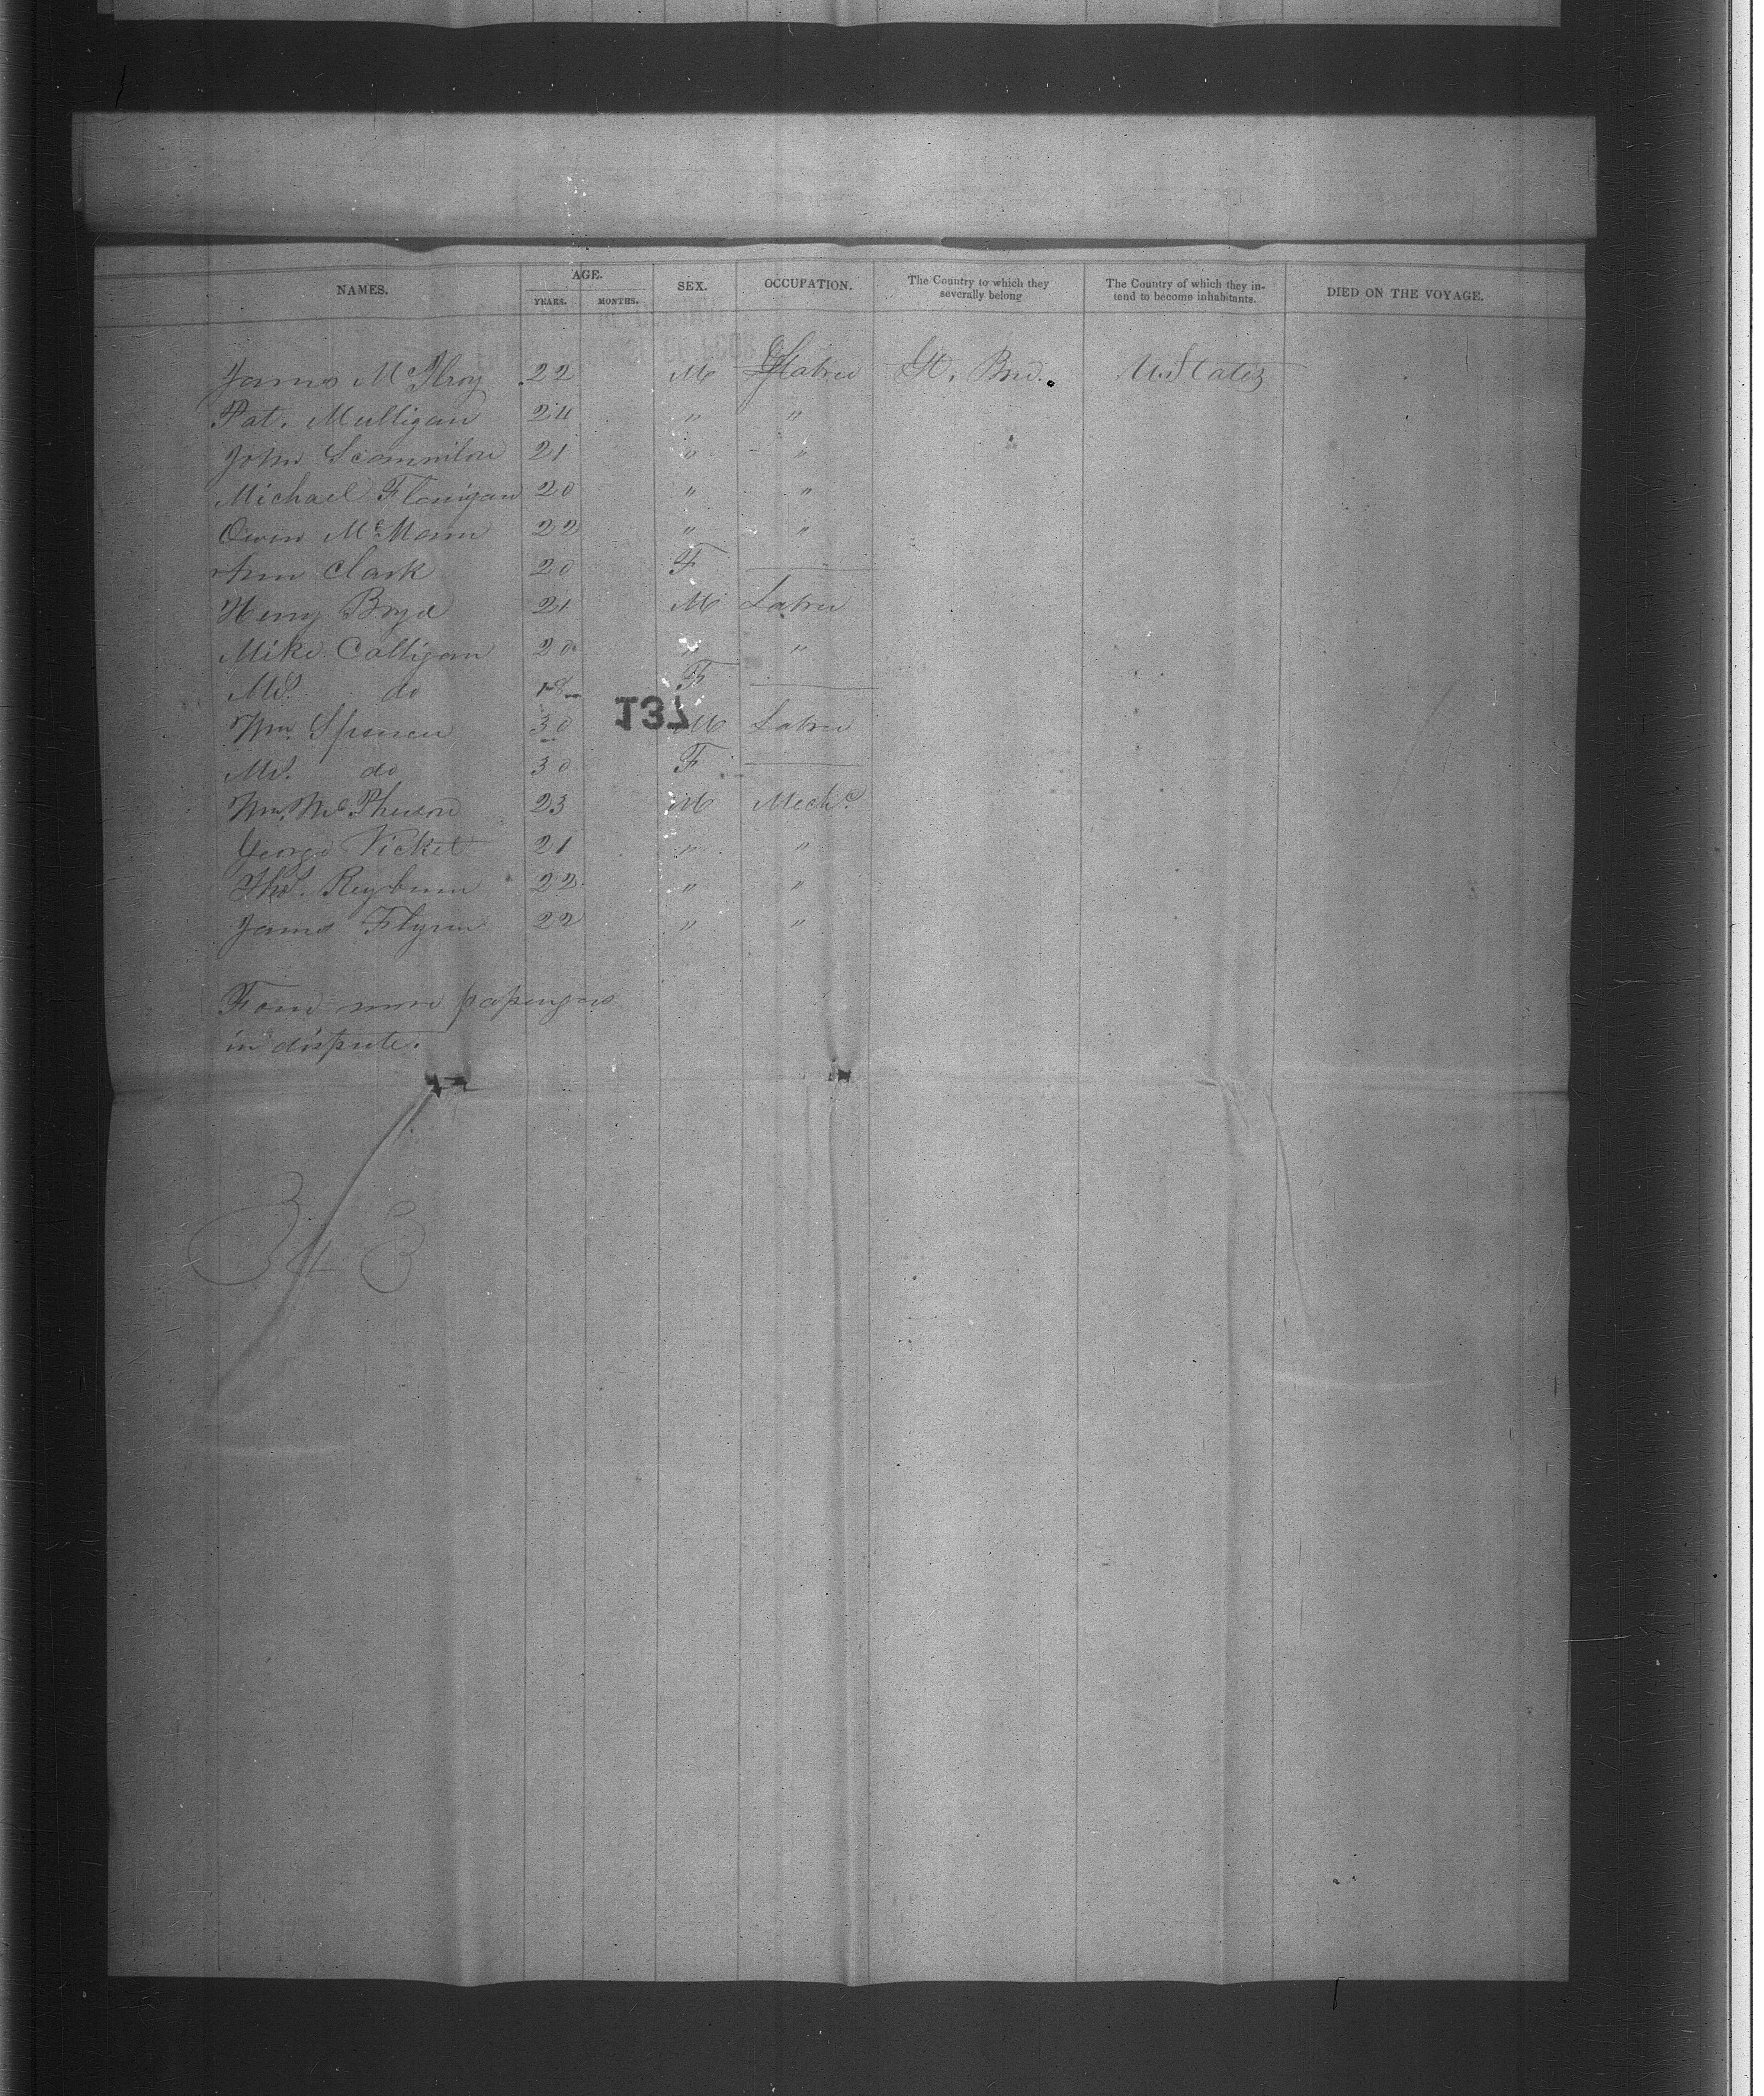 NAMES. AGE. YEARS. MONTHS. SEX. OCCUPATION. The Country to which they severally belong The Country of which they intend to become inhabitants. DIED ON THE VOYAGE.
James McIlroy 22 M Labrer Gt. Brn. U. States
Pat. Mulligan 24 " "
John Scannilon 21 " "
Michael Flanigan 20 " "
Owen McMann 22 " "
Ann Clark 20 F
Henry Boyd 21 M Labrer
Mike Calligan 20 " "
Mrs. do 18 F
137
Wm. Spencer 30 M Labrer
Mrs. do 30 F
Wm. McPherson 23 M Mechc.
George Picket 21 " "
Thos. Reyburn 22 " "
James Flynn 22 " "
Four more passengers
in dispute.
343